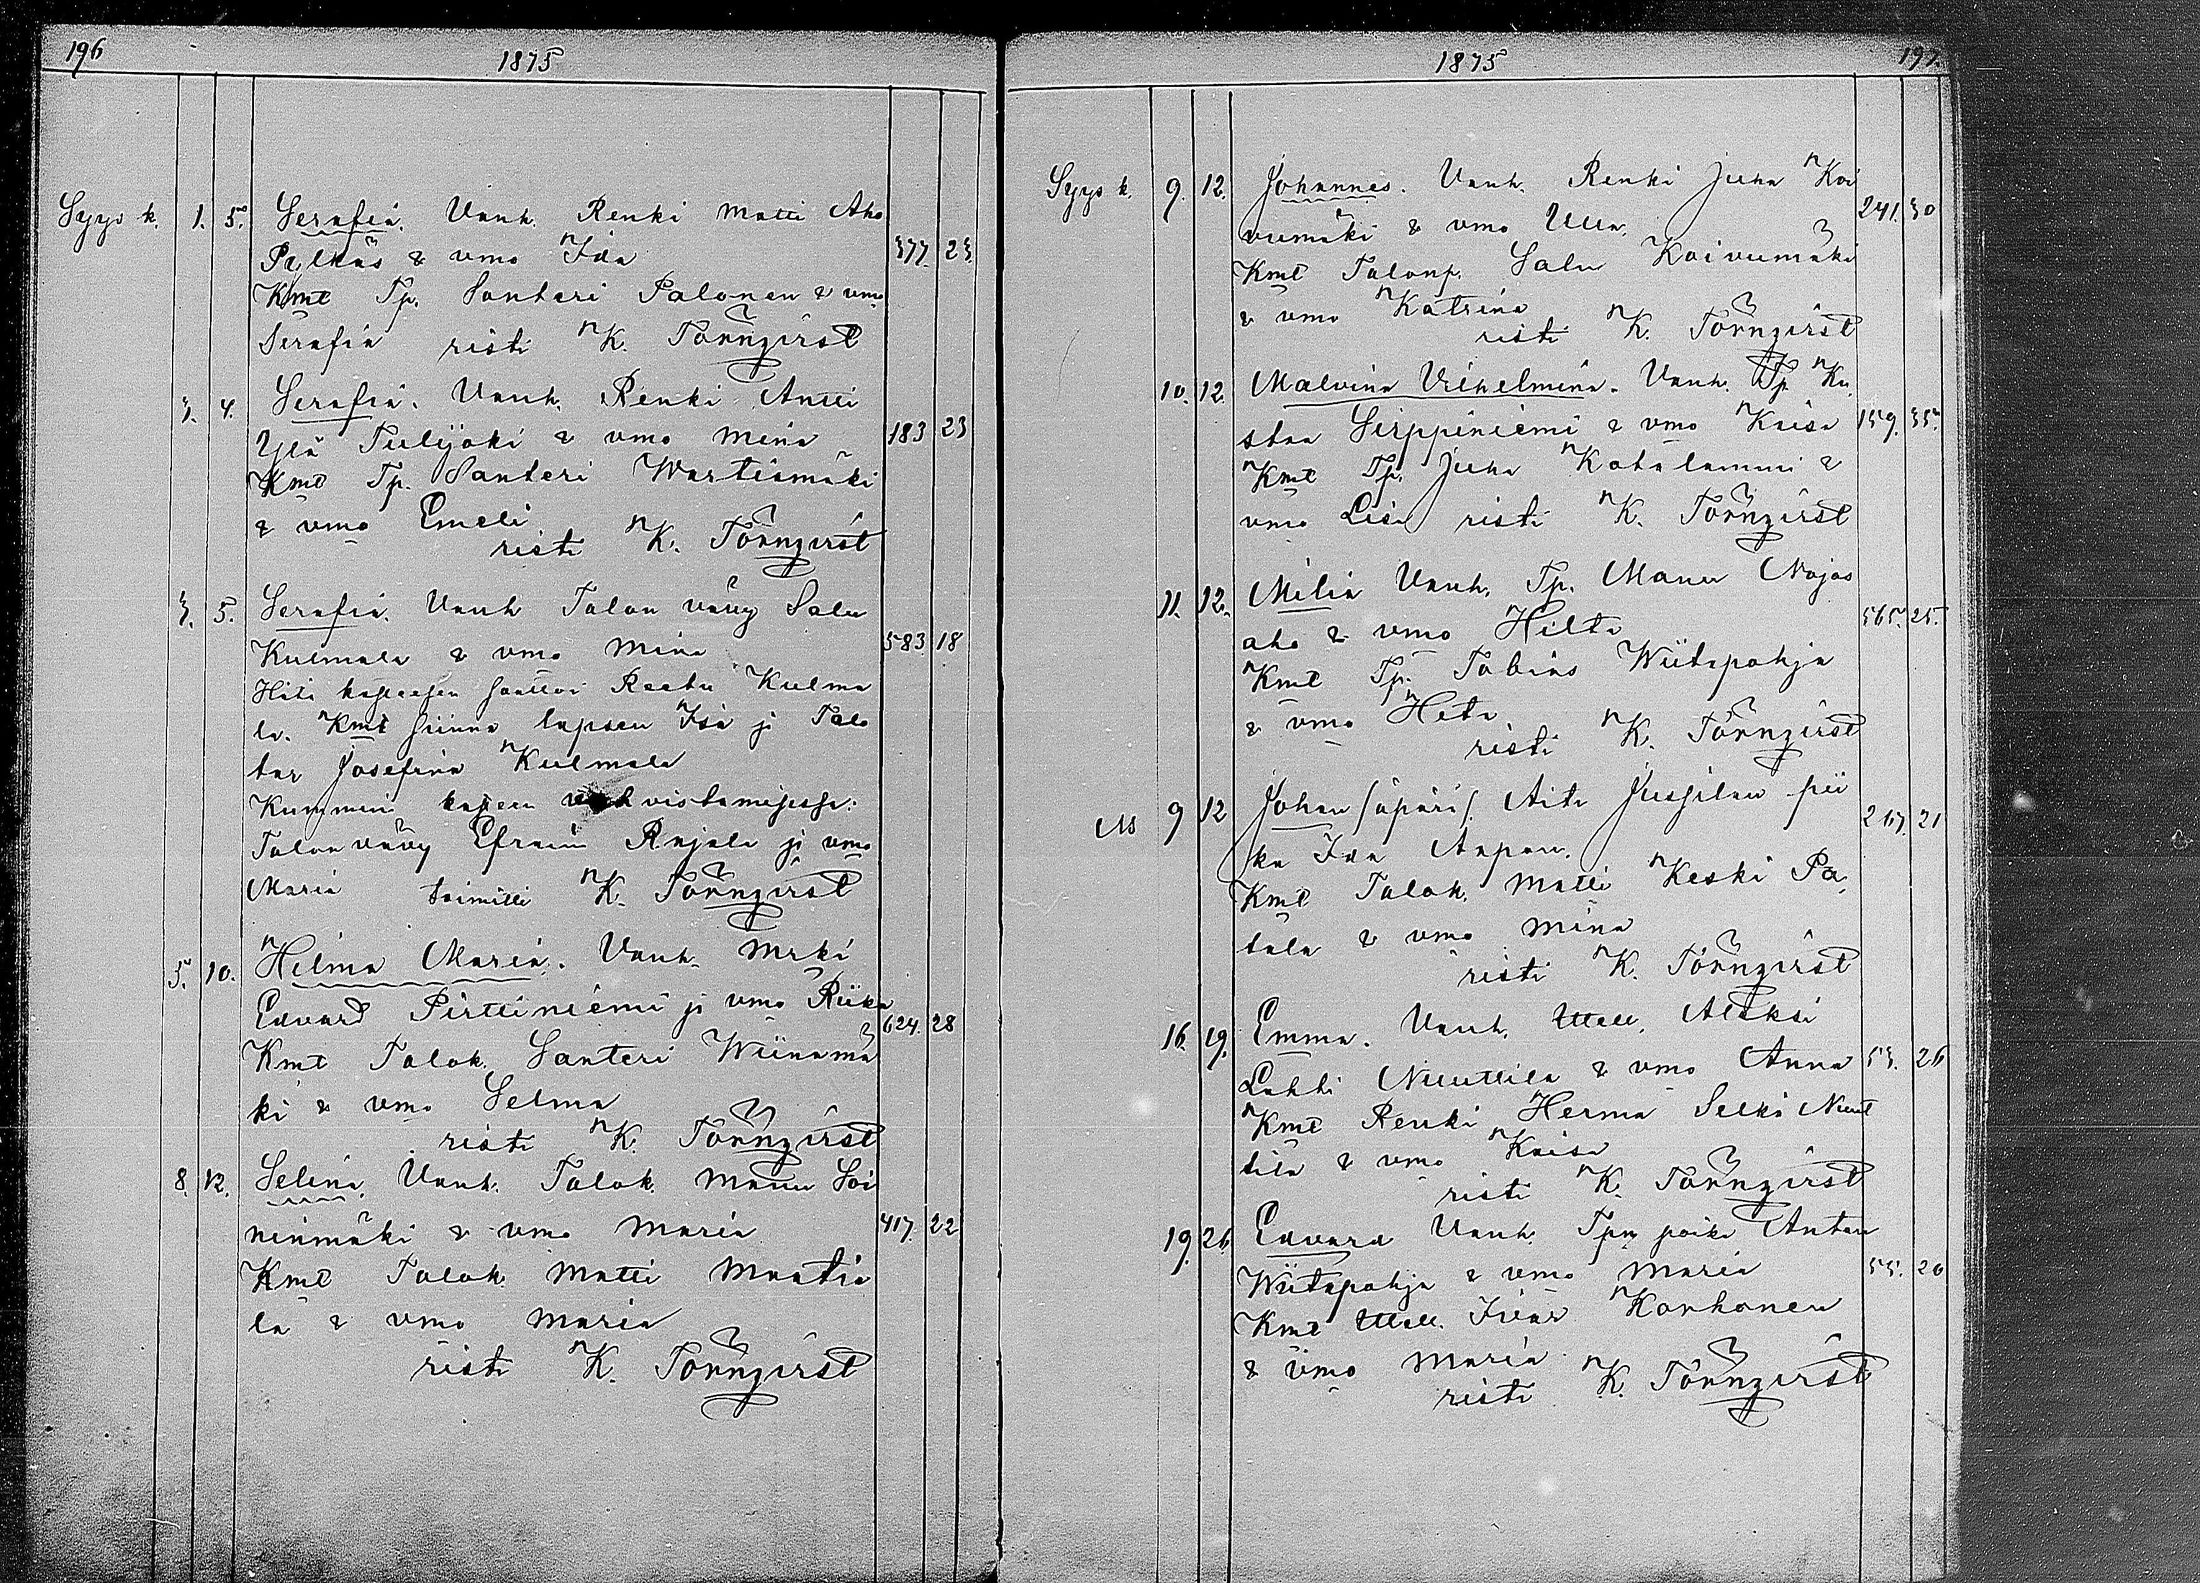 196
1875
Syysk. 1. 5. Serafia. Vanh. Renki Matti Aho
Pylkäs & vmo Ida 377. 23.
Kmt Tp. Santeri Palonen & vmo
Serafia risti K. Törnqvist
3. 4. Serafia. Vanh. Renki Antti
Ylä Tulijoki & vmo Mina 183 23
Kmt Tp. Santeri Wartiamäki
& vmo Emeli
risti K. Törnqvist
3. 5. Serafia. Vanh Talon vävy Salu
Kulmala & vmo Mina 583. 18
Hätä kasteesen Reeta Kulma
la. Kmt lapsen Isä ja Talo
tar Josefina Kulmala
Kummin kasteen vahvistamisessa:
Talon vävy Efraim Rajala ja vmo
Maria toimitti K. Törnqvist
5. 10. Hilma Maria. Vanh. Mrki
Edvard Pirttiniemi ja vmo Riika 624. 28
Kmt Talok. Santeri Wiinamä
ki & vmo Selma
risti K. Törnqvist
8. 12. Selina. Vanh. Talok. Manu Soi
ninmäki & vmo Maria 417. 22
Kmt Talok. Matti Maatia
la & vmo Maria
risti K. Törnqvist
1875
197.
Syysk. 9. 12. Johannes. Vanh. Renki Juha Koi
vumäki & vmo Ulla. 241. 30
Kmt Talonp. Salu Koivumäki
& vmo Katrina
risti K. Törnqvist
10. 12. Malvina Vilhelmina. Vanh. Tp. Ku
staa Sirppiniemi & vmo Kaisa 159. 35.
Kmt Tp. Juha Katalammi &
vmo Lisa risti K. Törnqvist
11. 12. Milia Vanh. Tp. Manu Nojos
aho & vmo Hilta 565. 25.
Kmt Tp. Tobias Wiitapohja
& vmo Heta.
risti K. Törnqvist
9 12 Johan (äpärä). Äiti Jussilan pii
ka Ida Aapon. 267. 21
Kmt Talok. Matti Keski Pa
tala & vmo Mina
risti K. Törnqvist
16. 19. Emma. Vanh. Aleksi
Lahti Niuttila & vmo Anna 53. 26
Kmt Renki Herma Selkä Niut
tila & vmo Kaisa
risti K. Törnqvist
19. 26 Edvard Vanh. Tpn poika Anton
Wiitapohja & vmo Maria 55. 20
Kmt Iivar Korhonen
& vmo Maria
risti K. Törnqvist